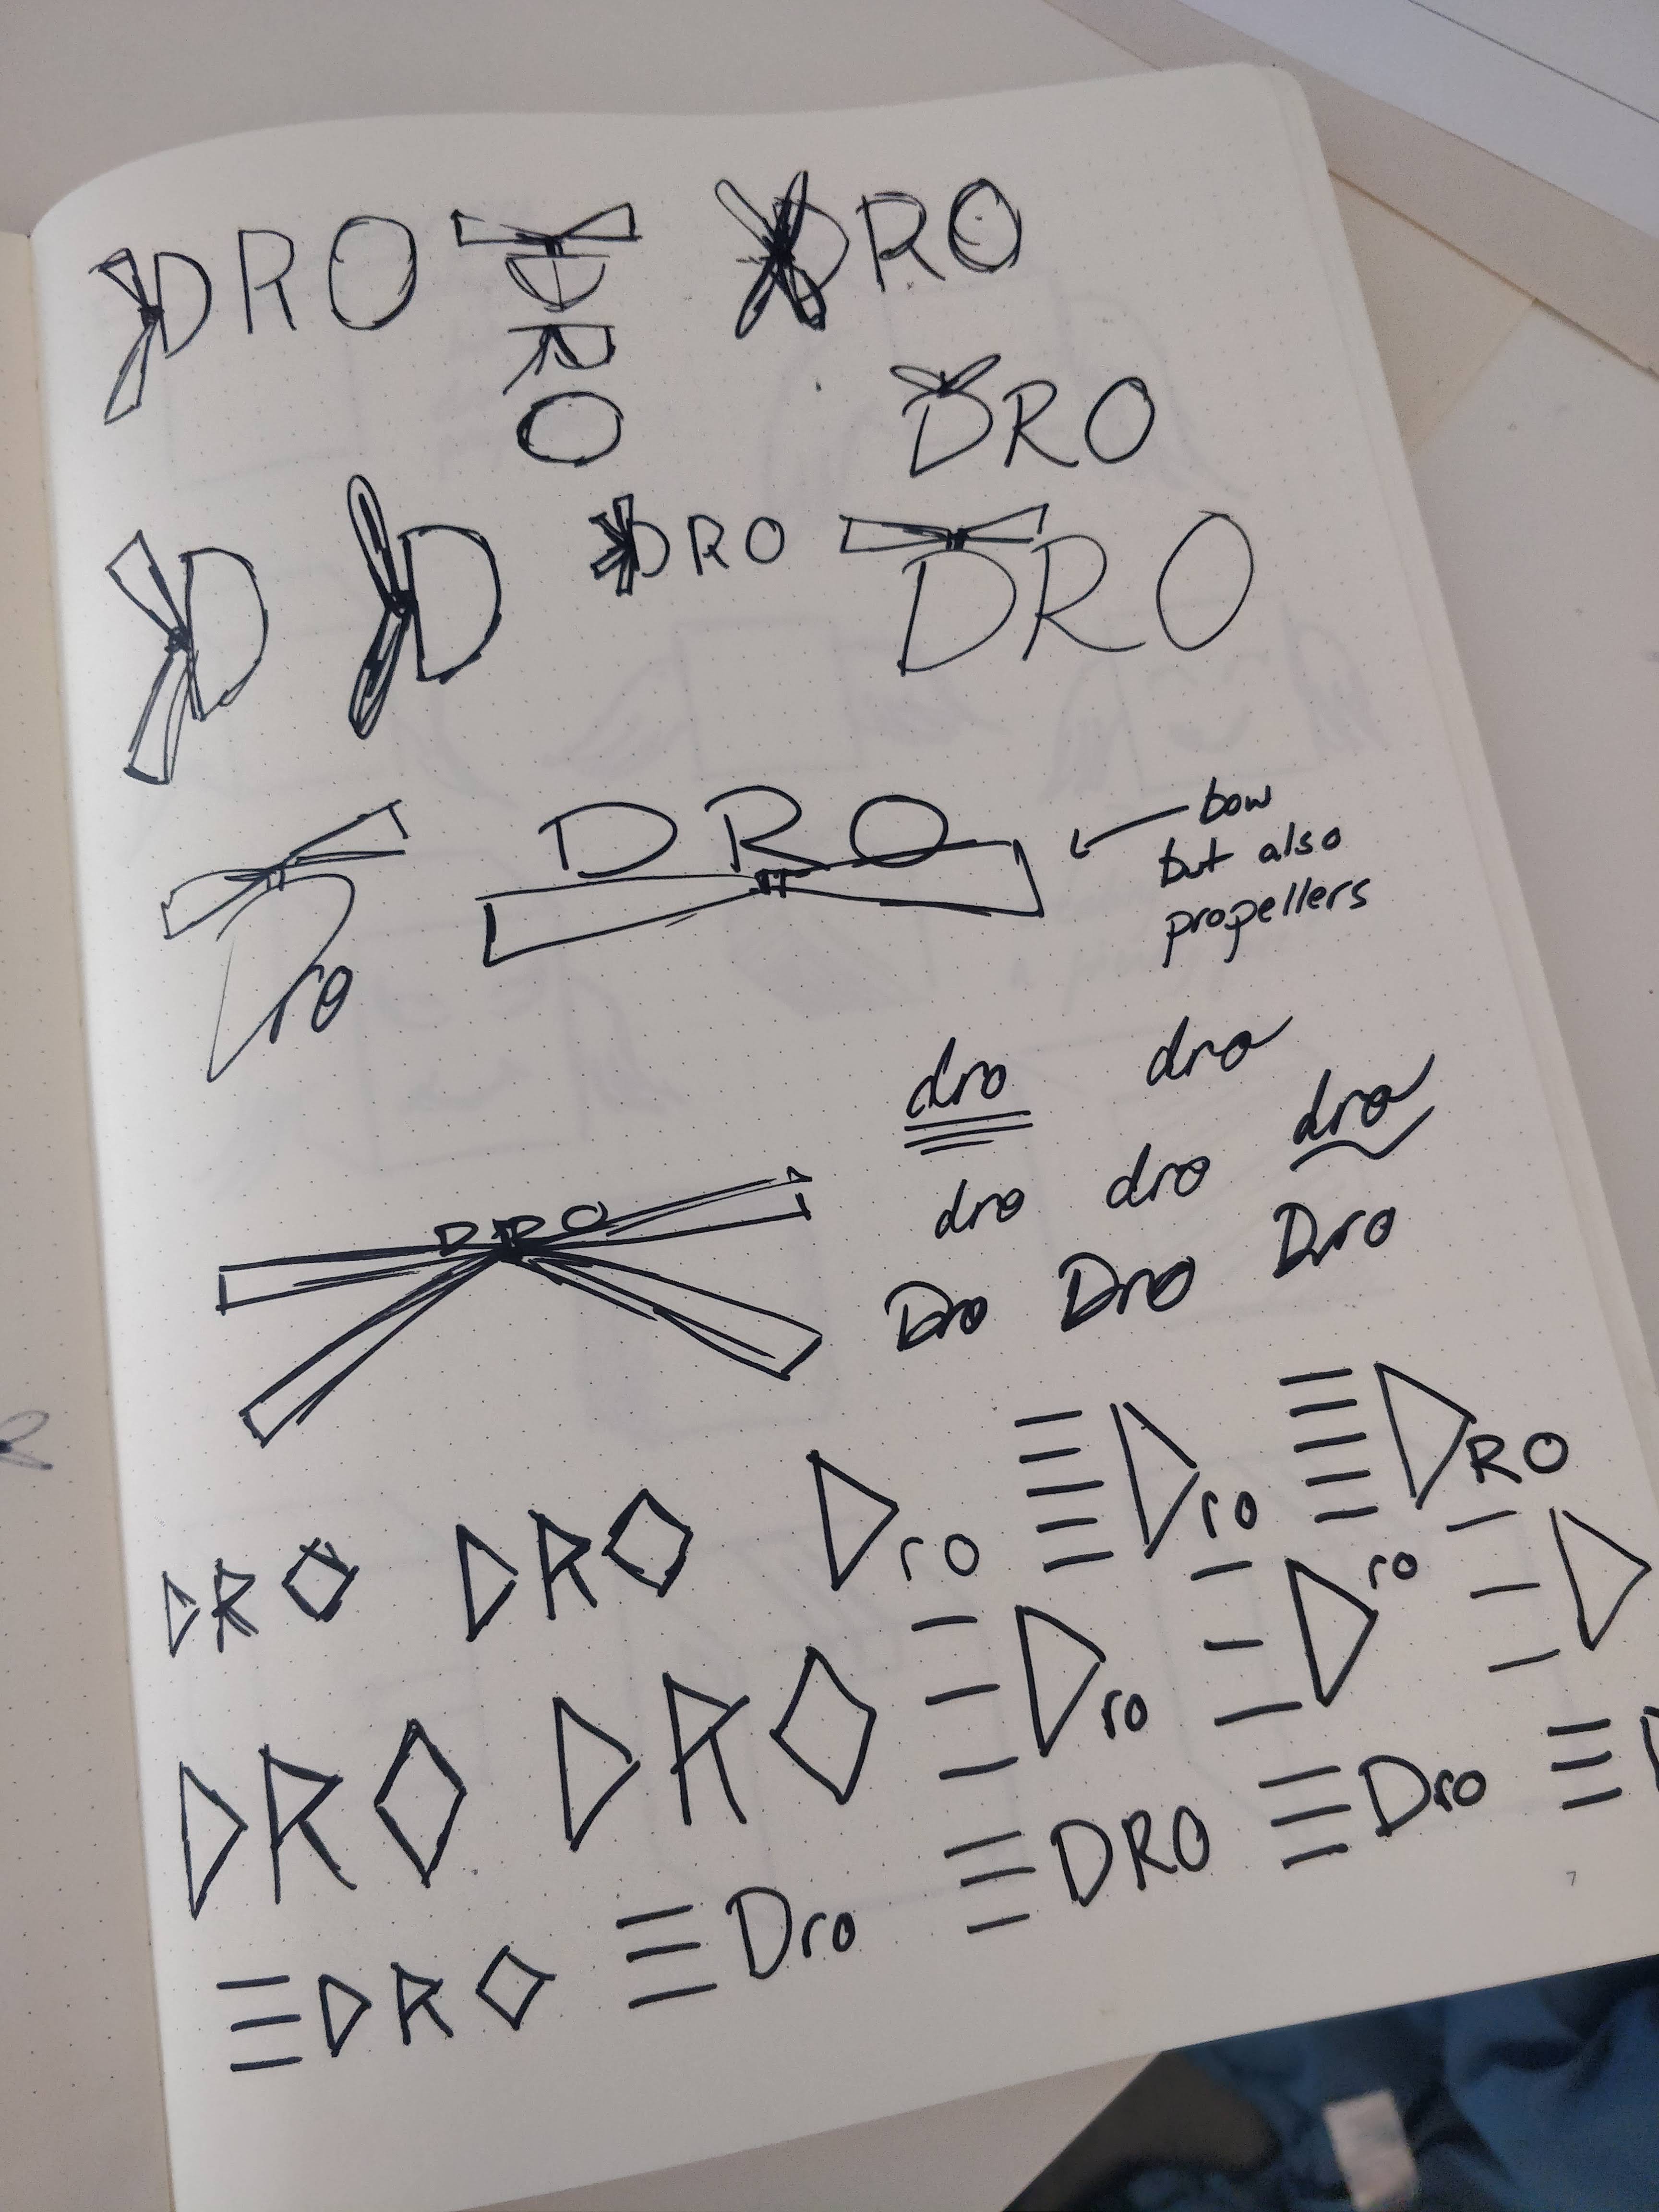 DRO
DRO
DRO
DRO
D
D
DRO
DRO
Dro
DRO
bow
but also
propellers
dro
dro
dro
dro
dro
Dro
Dro
Dro
DRO
DRO
DRO
Dro
Dro
DRO
DRO
DRO
Dro
Dro
D
DRO
Dro
DRO
Dro
7